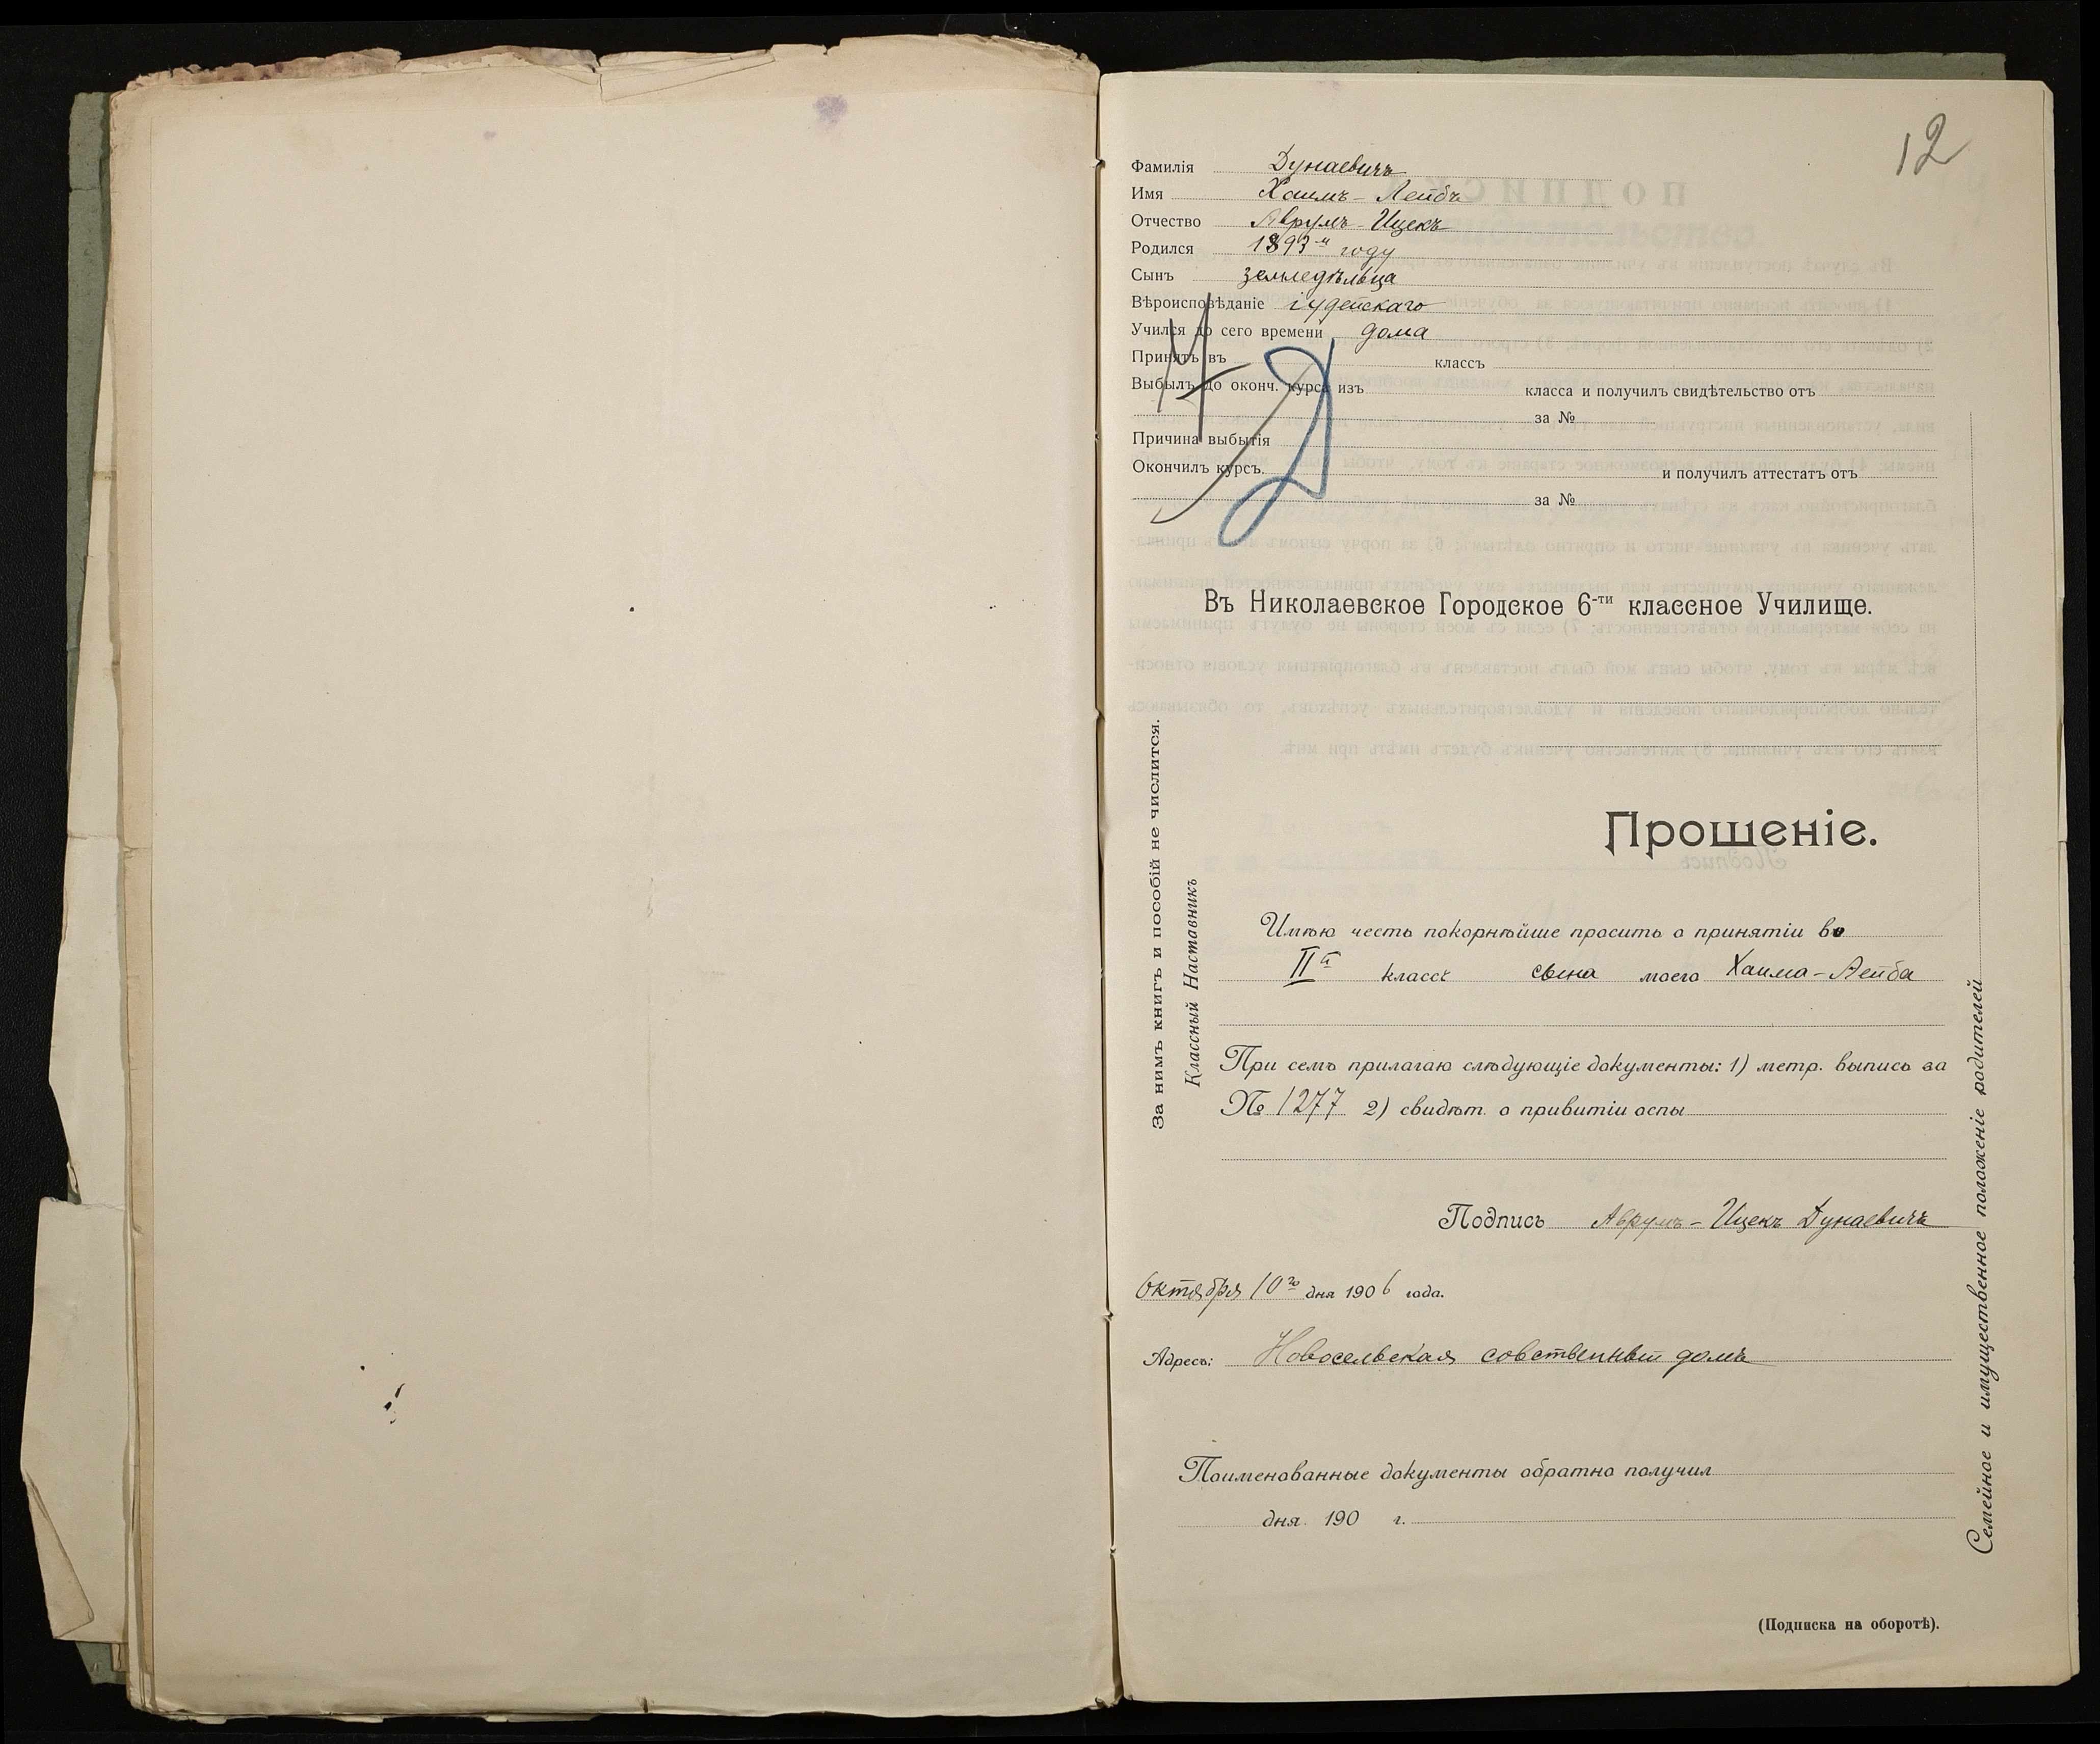 12
Фамилія Дунаевичъ
Имя Хаимъ-Лейбъ
Отчество Аврумъ-Ицекъ
Родился 1893-м году
Сынъ земледѣльца
Вѣроисповѣданіе іудейскаго
Учился до сего времени дома
Принятъ въ классъ
Выбылъ до оконч. курса изъ класса и получилъ свидѣтельство отъ
за №
Причина выбытія
Окончилъ курсъ и получилъ аттестатъ отъ
за №
Въ Николаевское Городское 6-ти классное Училище.
Прошеніе.
Имѣю честь покорнѣйше просить о принятіи во
IIй классъ сына моего Хаима-Лейба
При семъ прилагаю слѣдующіе документы: 1) метр. выпись за
№ 1277 2) свидѣт. о привитіи оспы
Подпись Аврумъ-Ицекъ Дунаевичъ
Октября 10го дня 1906 года.
Адресъ: Новосельская собственный домъ
Поименованные документы обратно получил
дня 190 г.
(Подписка на оборотѣ).
За нимъ книгъ и пособій не числится.
Классный Наставникъ
Семейное и имущественное положеніе родителей